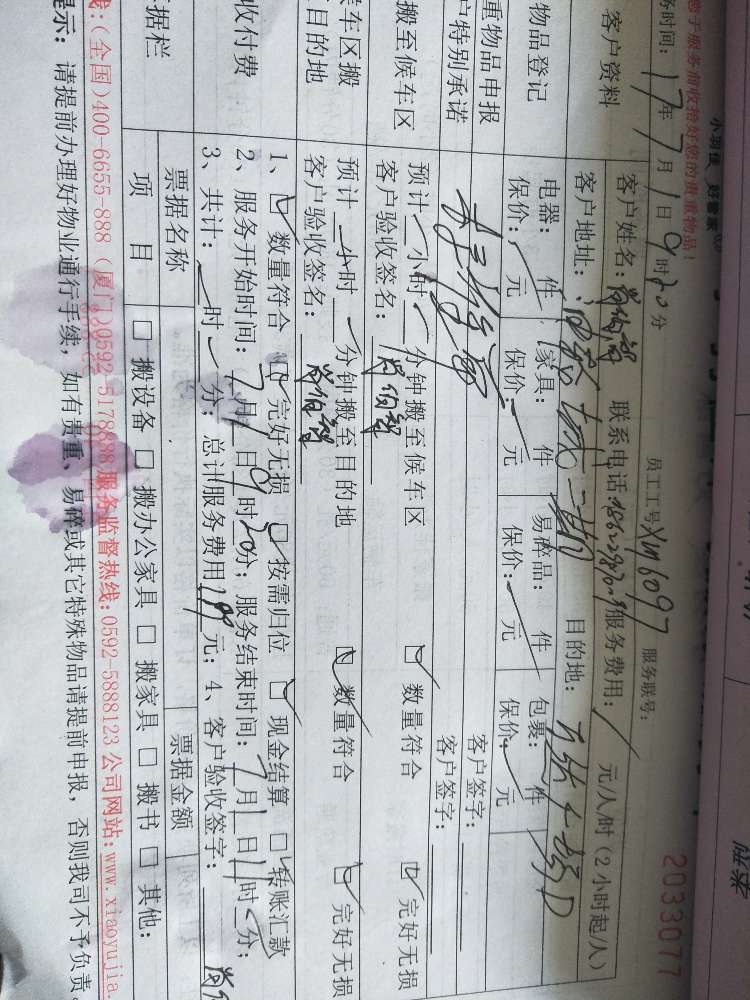 小羽佳 好管家
您于服务前收拾好您的贵重物品！
务时间：17年7月1日9时20分
员工工号XM6097
服务联号：
2033077
客户资料
客户姓名：
联系电话：
服务费用：/元/人/时（2小时起/人）
客户地址：
目的地：
物品登记
电器： 件 家具： 件 易碎品： 件 包裹： 件
保价： 元 保价： 元 保价： 元 保价： 元
重物品申报
客户签字：
户特别承诺
客户签字：
搬至候车区
预计 小时 分钟搬至候车区
数量符合
完好无损
客户验收签名：
候车区搬
至目的地
预计 小时 分钟搬至目的地
数量符合
完好无损
客户验收签名：
收付费
1、数量符合 完好无损 按需归位 现金结算 转账汇款
2、服务开始时间：7月1日9时20分；服务结束时间：7月1日11时 分；
3、共计： 时 分；总计服务费用 元；4、客户验收签字：
据栏
票据名称
票据金额
项 目
□ 搬设备 □ 搬办公家具 □ 搬家具 □ 搬书 □ 其他：
线：(全国)400-6655-888 (厦门)0592-5178888 服务监督热线：0592-5888123 公司网站：www.xiaoyujia.
提示：请提前办理好物业通行手续，如有贵重、易碎或其它特殊物品请提前申报，否则我司不予负责。